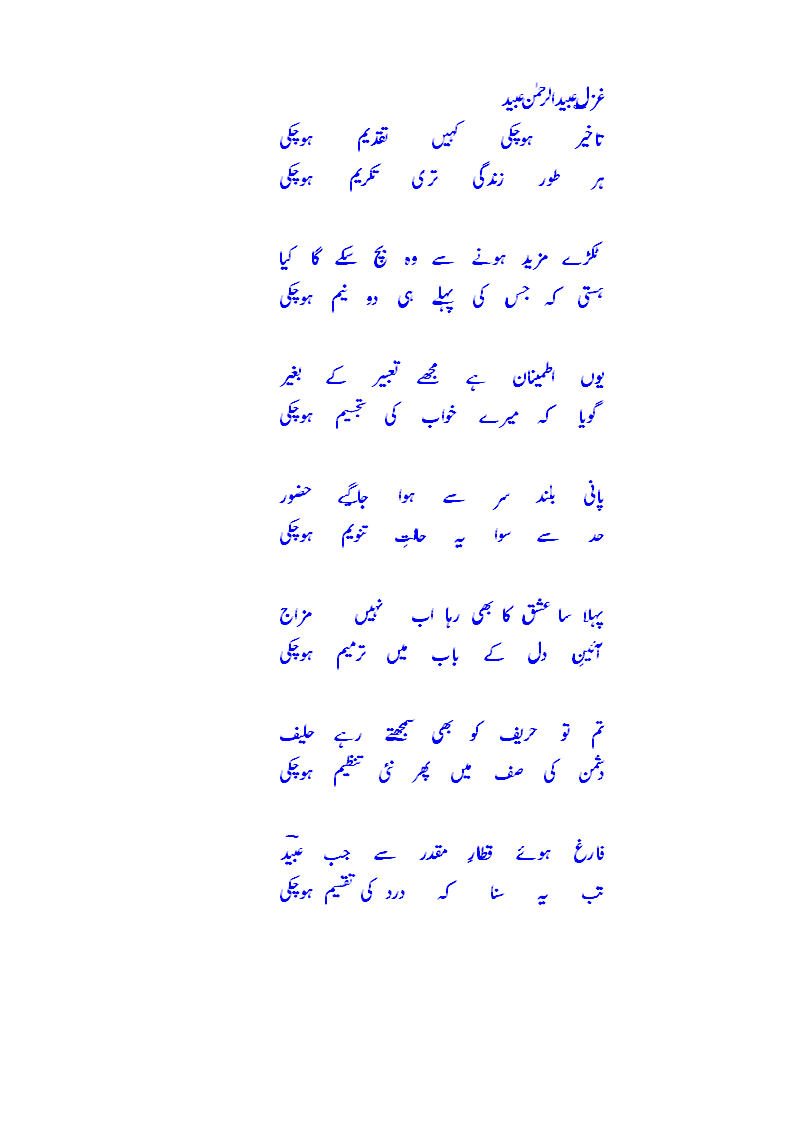 غزل عبیدالرحمٰن عبید
تاخیر ہوچکی کہیں تقدیم ہوچکی
ہر طور زندگی تری تکریم ہوچکی
ٹکڑے مزید ہونے سے وہ بچ سکے گا کیا
ہستی کہ جس کی پہلے ہی دو نیم ہوچکی
یوں اطمینان ہے مجھے تعبیر کے بغیر
گویا کہ میرے خواب کی تجسیم ہوچکی
پانی بلند سر سے ہوا جاگیے حضور
حد سے سوا یہ حالتِ تنویم ہوچکی
پہلا سا عشق کا بھی رہا اب نہیں مزاج
آئینِ دل کے باب میں ترمیم ہوچکی
تم تو حریف کو بھی سمجھتے رہے حلیف
دشمن کی صف میں پھر نئی تنظیم ہوچکی
فارغ ہوئے قطارِ مقدر سے جب عبیدؔ
تب یہ سنا کہ درد کی تقسیم ہوچکی